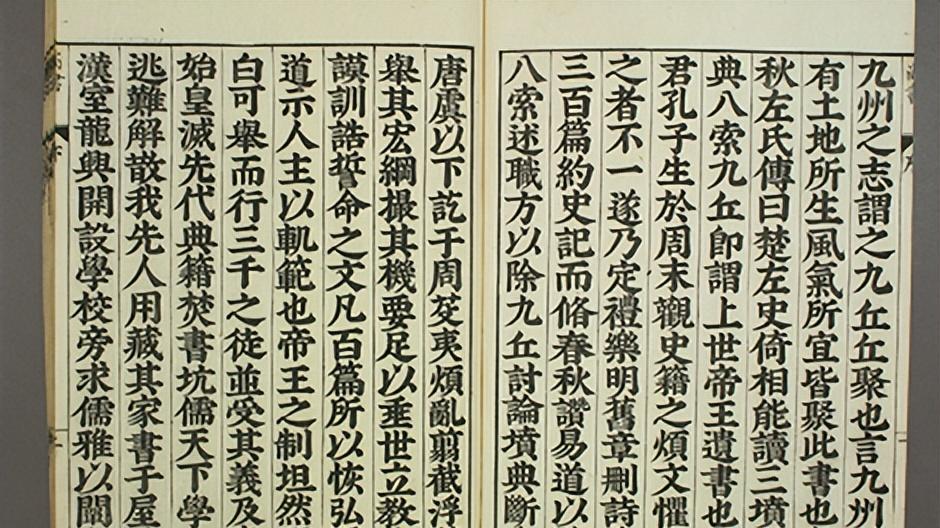 九州之志謂之九丘丘聚也言九州
有土地所生風氣所宜皆聚此書也
秋左氏傳曰楚左史倚相能讀三墳
典八索九丘即謂上世帝王遺書也
君孔子生於周末觀史籍之煩文懼
之者不一遂乃定禮樂明舊章刪詩
三百篇約史記而脩春秋讚易道以
八索述職方以除九丘討論墳典斷
唐虞以下訖于周芟夷煩亂翦截浮
舉其宏綱撮其機要足以垂世立教
謨訓誥誓命之文凡百篇所以恢弘
道示人主以軌範也帝王之制坦然
白可舉而行三千之徒並受其義及
始皇滅先代典籍焚書坑儒天下學
逃難解散我先人用藏其家書于屋
漢室龍興開設學校旁求儒雅以闡